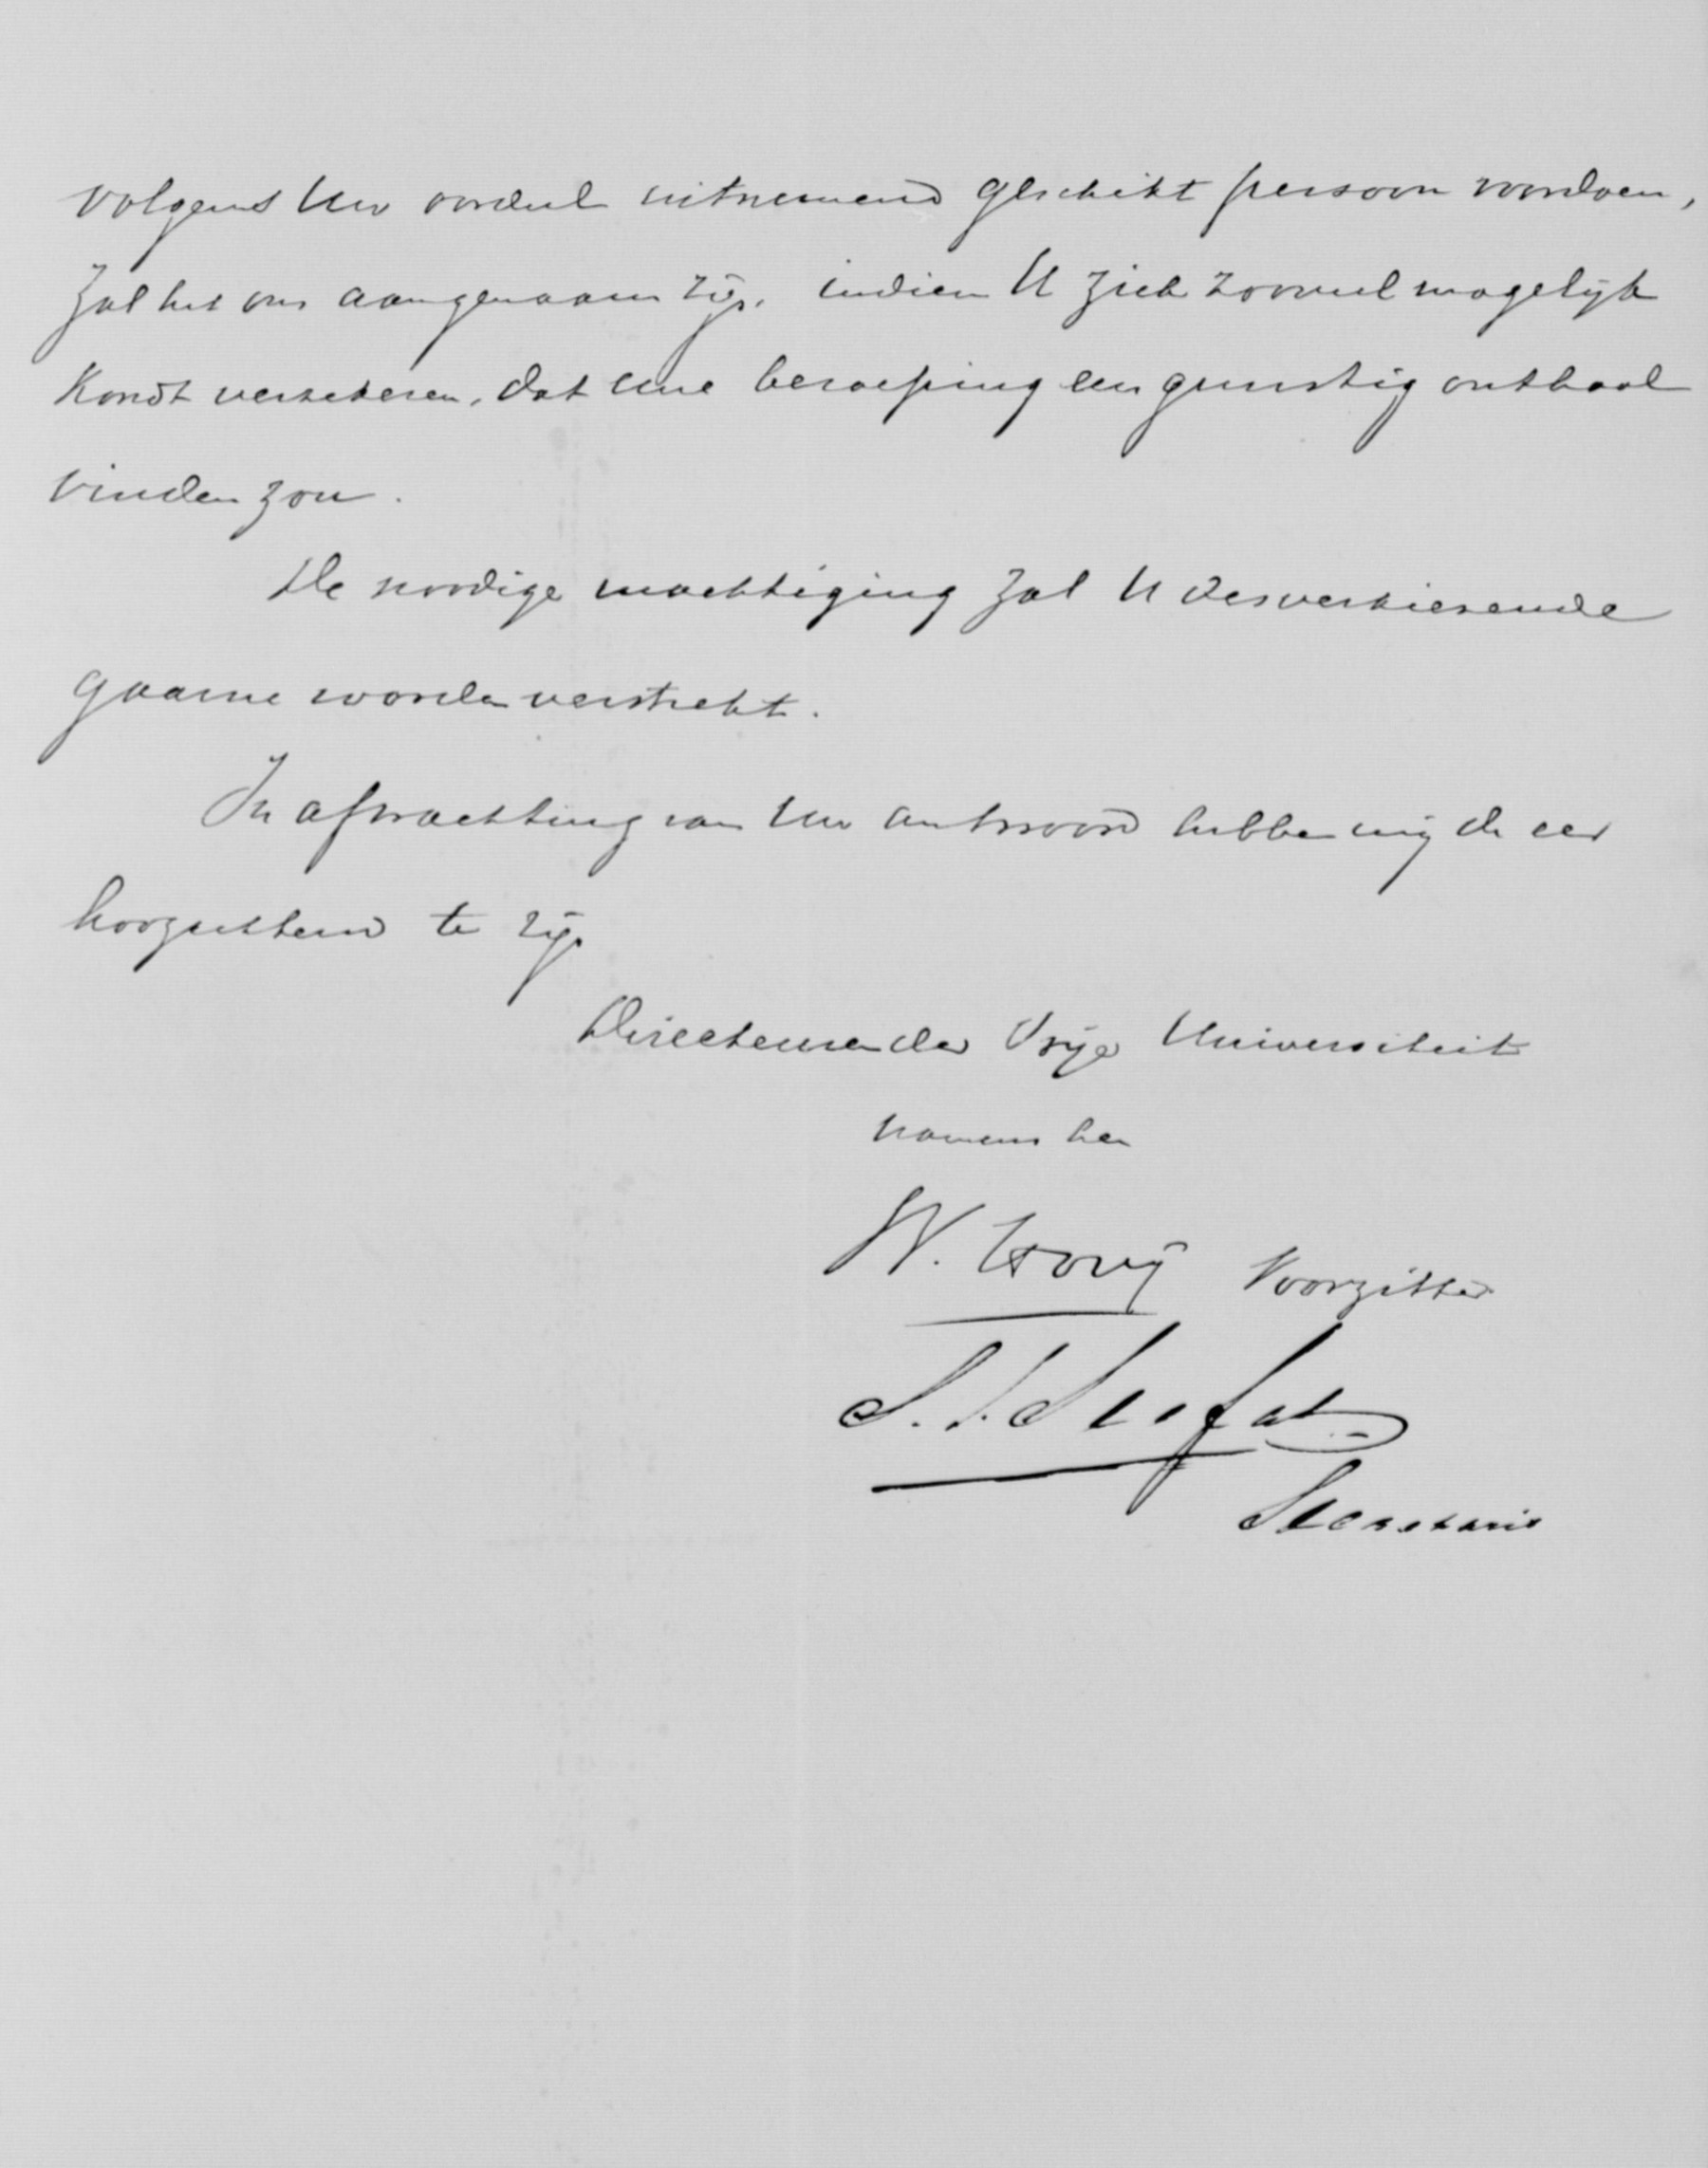 volgens Uw oordeel uitnemend geschikt persoon voordoen,
zal het ons aangenaam zijn, indien U zich zooveel mogelijk
kondt verzekeren, dat eene beroeping een gunstig onthaal
vinden zou.
De noodige machtiging zal U desverkiezende
gaarne worden verstrekt.
In afwachting van Uw antwoord hebben wij de eer
hoogachtend te zijn
Directeuren der Vrije Universiteit
namens hen
W. Hovij Voorzitter
Secretaris